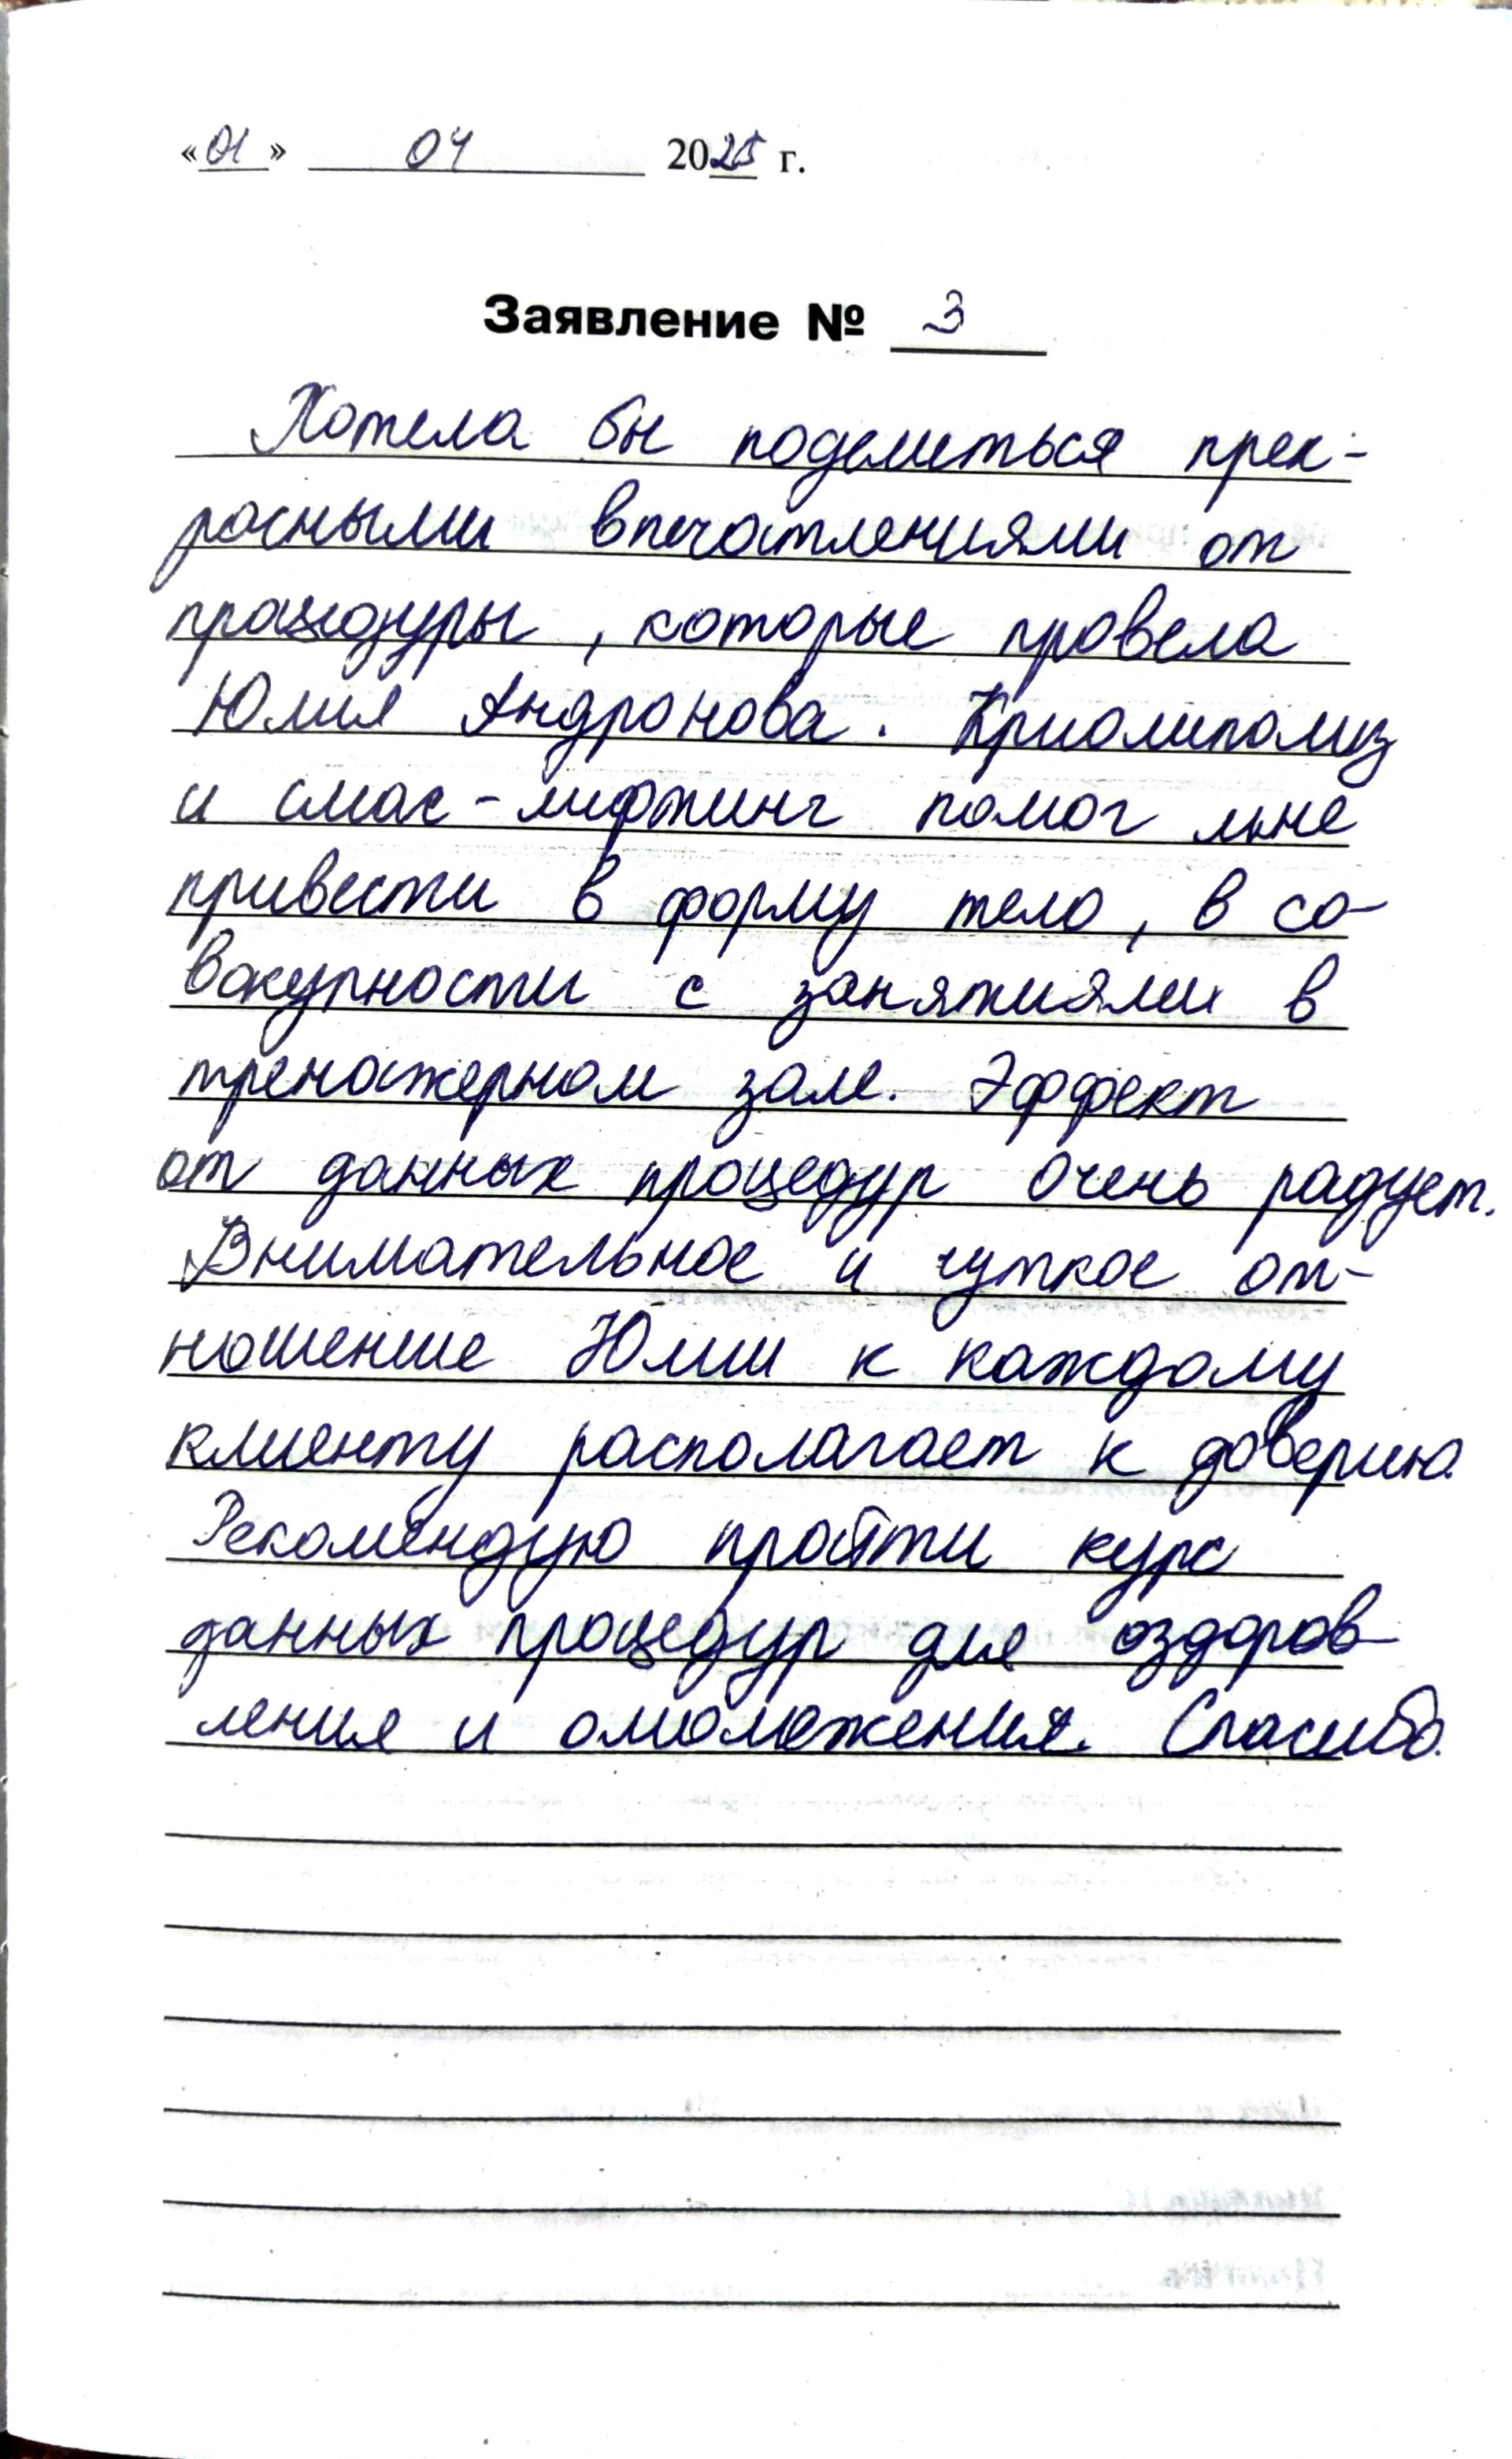 «01» 04 2025 г.
Заявление № 3
Хотела бы поделиться прек-
расными впечатлениями от
процедуры, которые провела
Юлия Андронова. Криолиполиз
и смас-лифтинг помог мне
привести в форму тело, в со-
вокупности с занятиями в
тренажерном зале. Эффект
от данных процедур очень радует.
Внимательное и чуткое от-
ношение Юлии к каждому
клиенту располагает к доверию.
Рекомендую пройти курс
данных процедур для оздоров-
ления и омоложения. Спасибо.